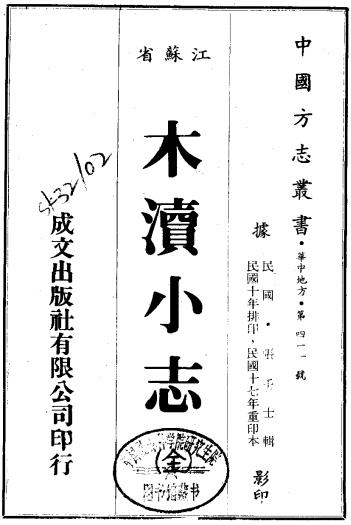 中國方志叢書・華中地方・第四一一號
據
民國・張壬士輯
民國十年排印，民國十七年重印本
影印
江蘇省
木瀆小志
成文出版社有限公司印行
学院研究生院
图书馆藏书